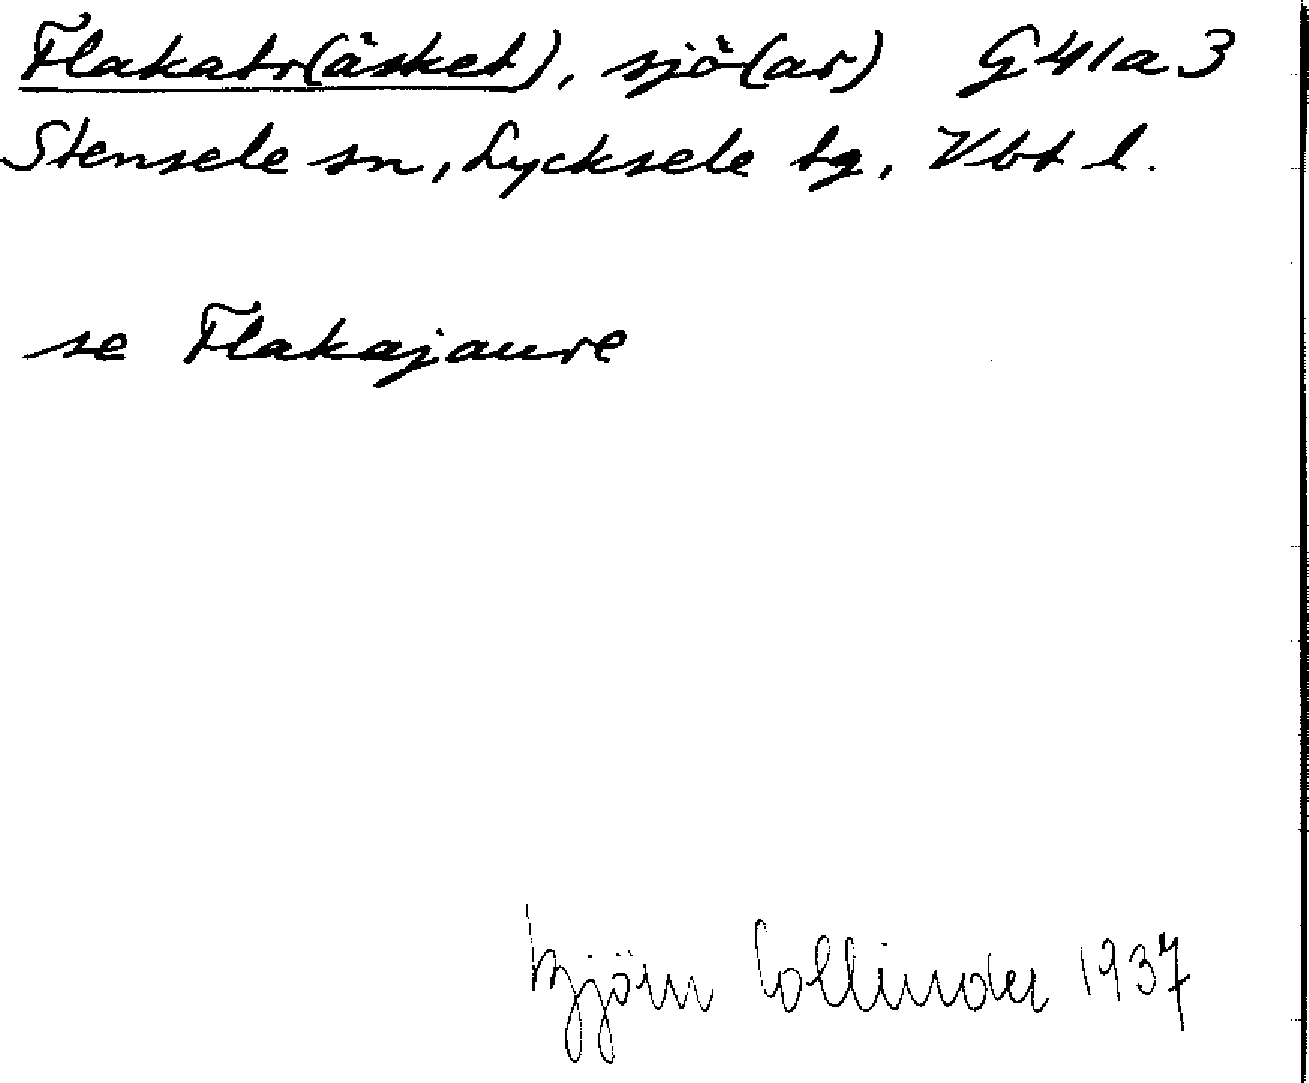 Flakatr(äsket), sjö(ar) G41a3
Stensele sn, Lycksele tg, Vbt l.
se Flakajaure
Björn Collinder 1937